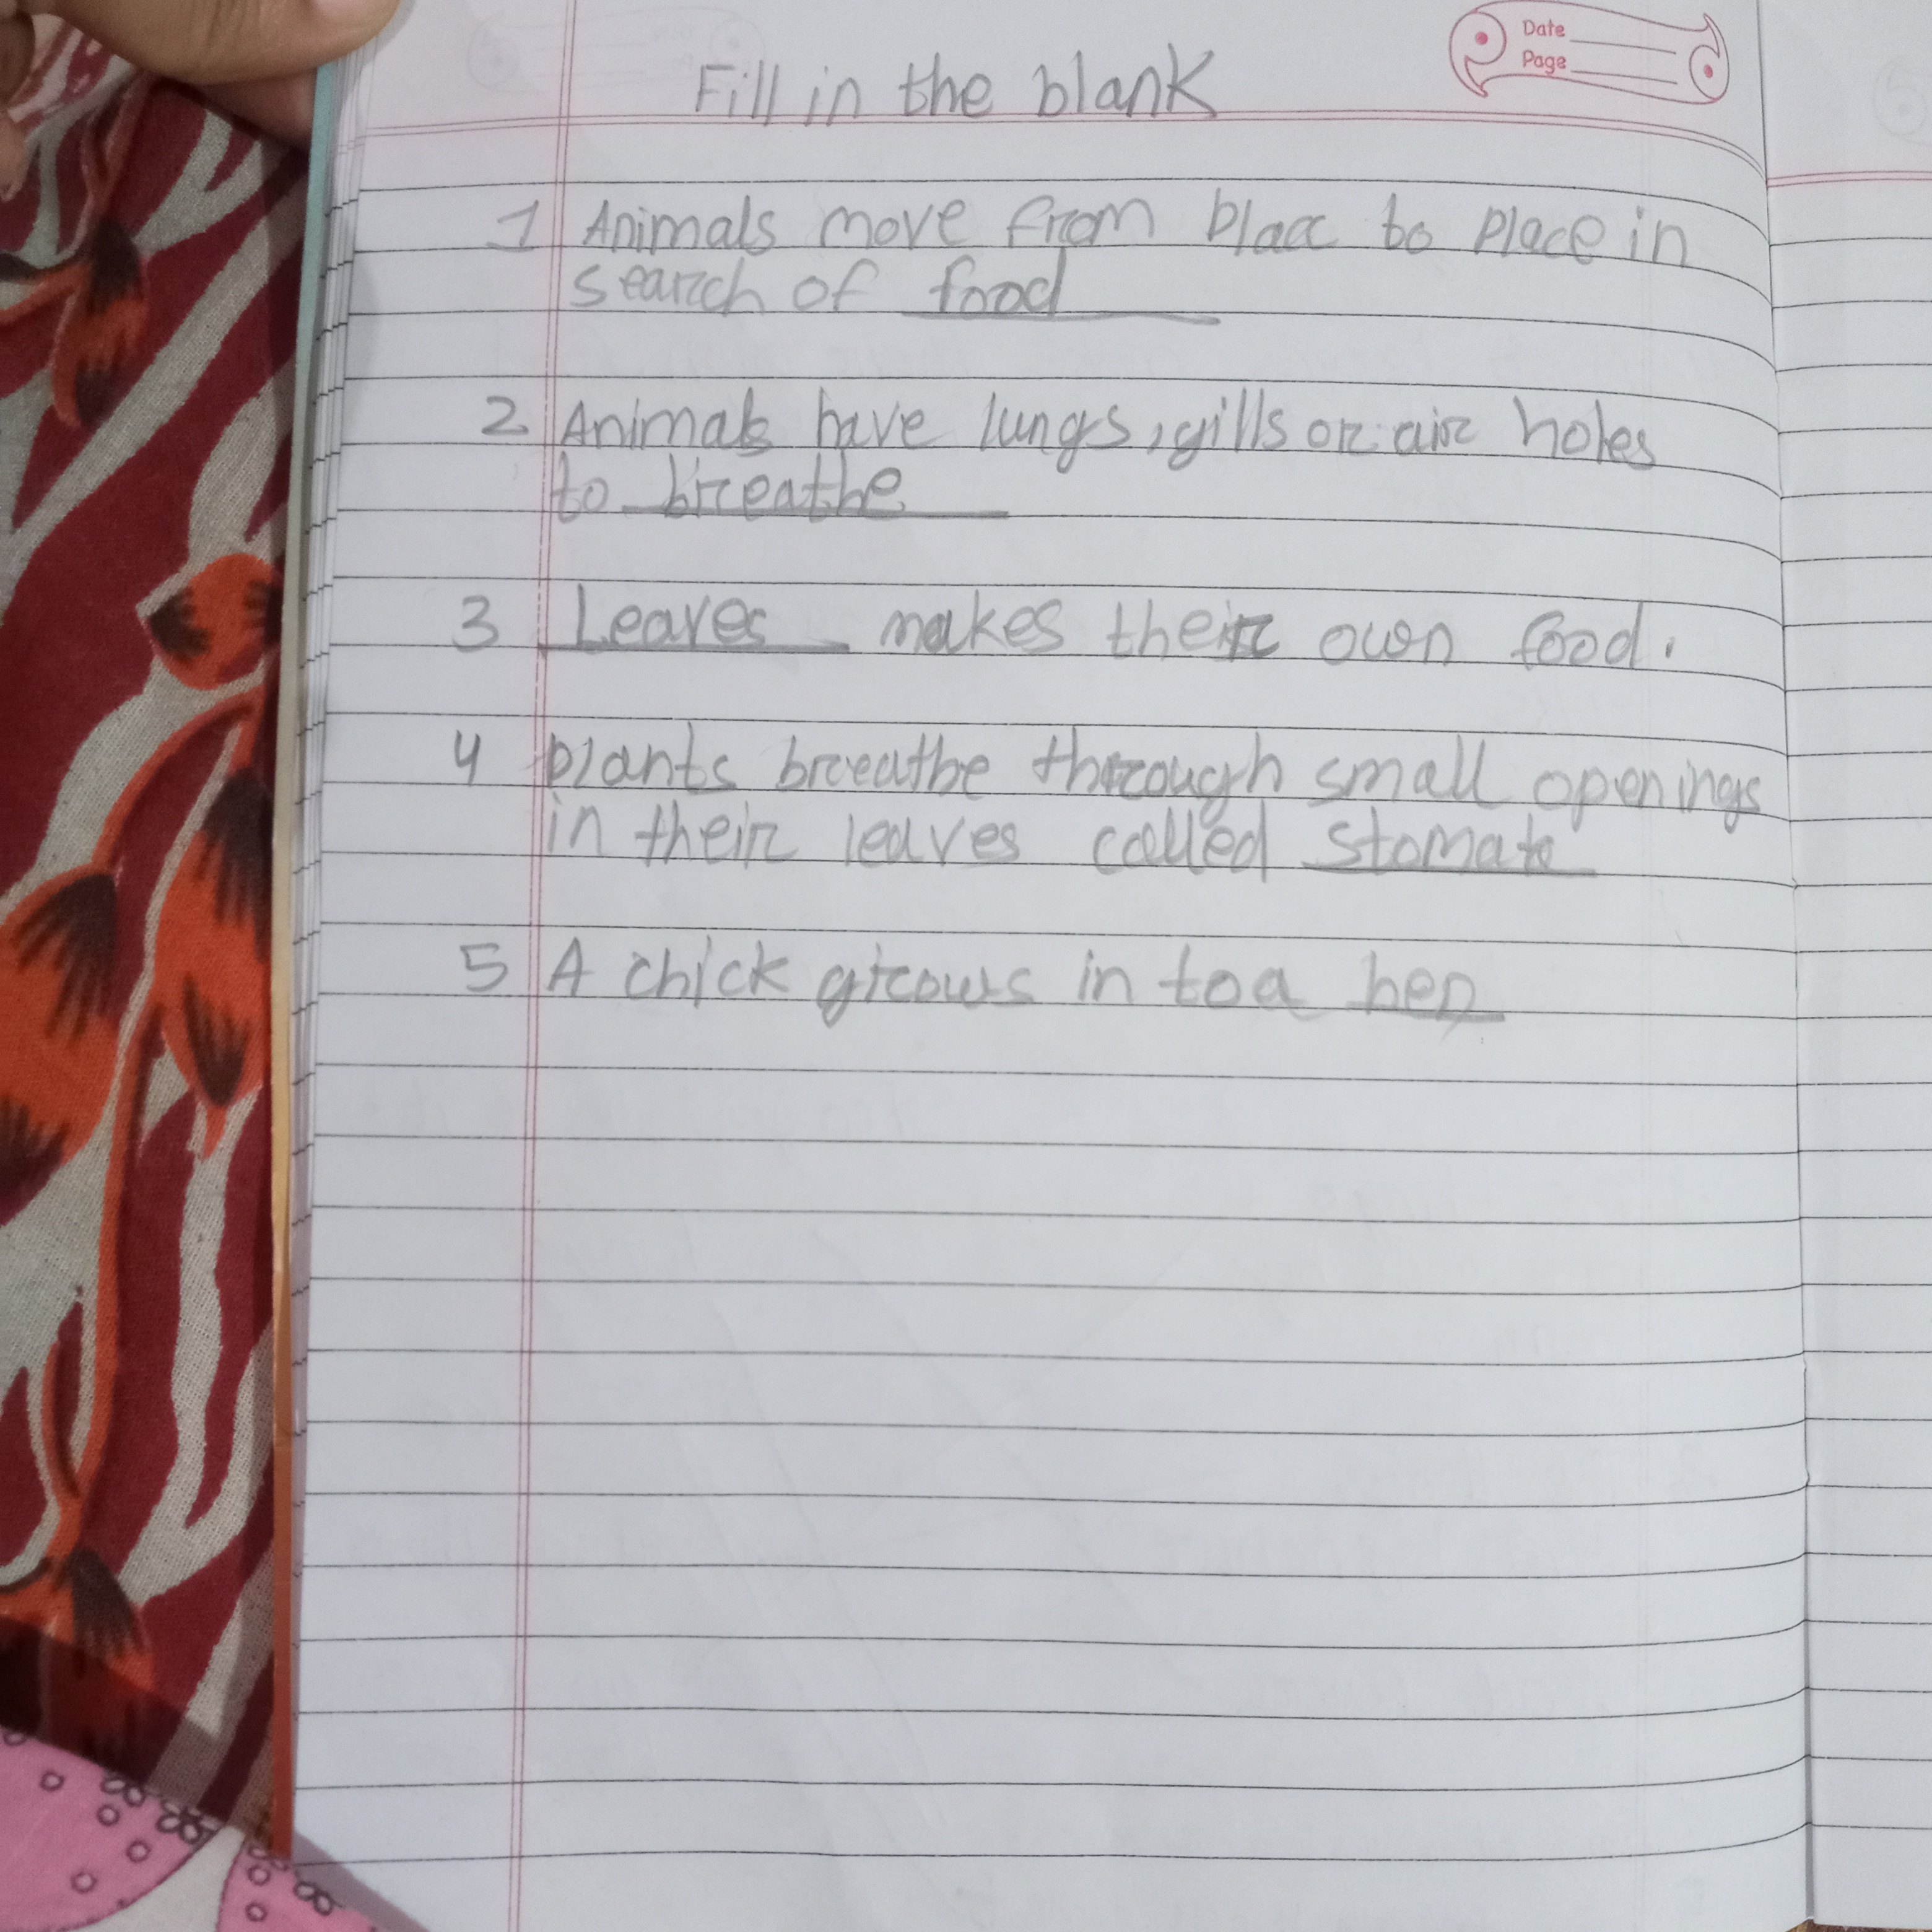 Date
Page
Fill in the blank
1 Animals move from place to place in
search of food
2 Animals have lungs, gills or air holes
to breathe
3 Leaves makes their own food.
4 plants breathe through small openings
in their leaves called stomata
5 A chick grows in to a hen